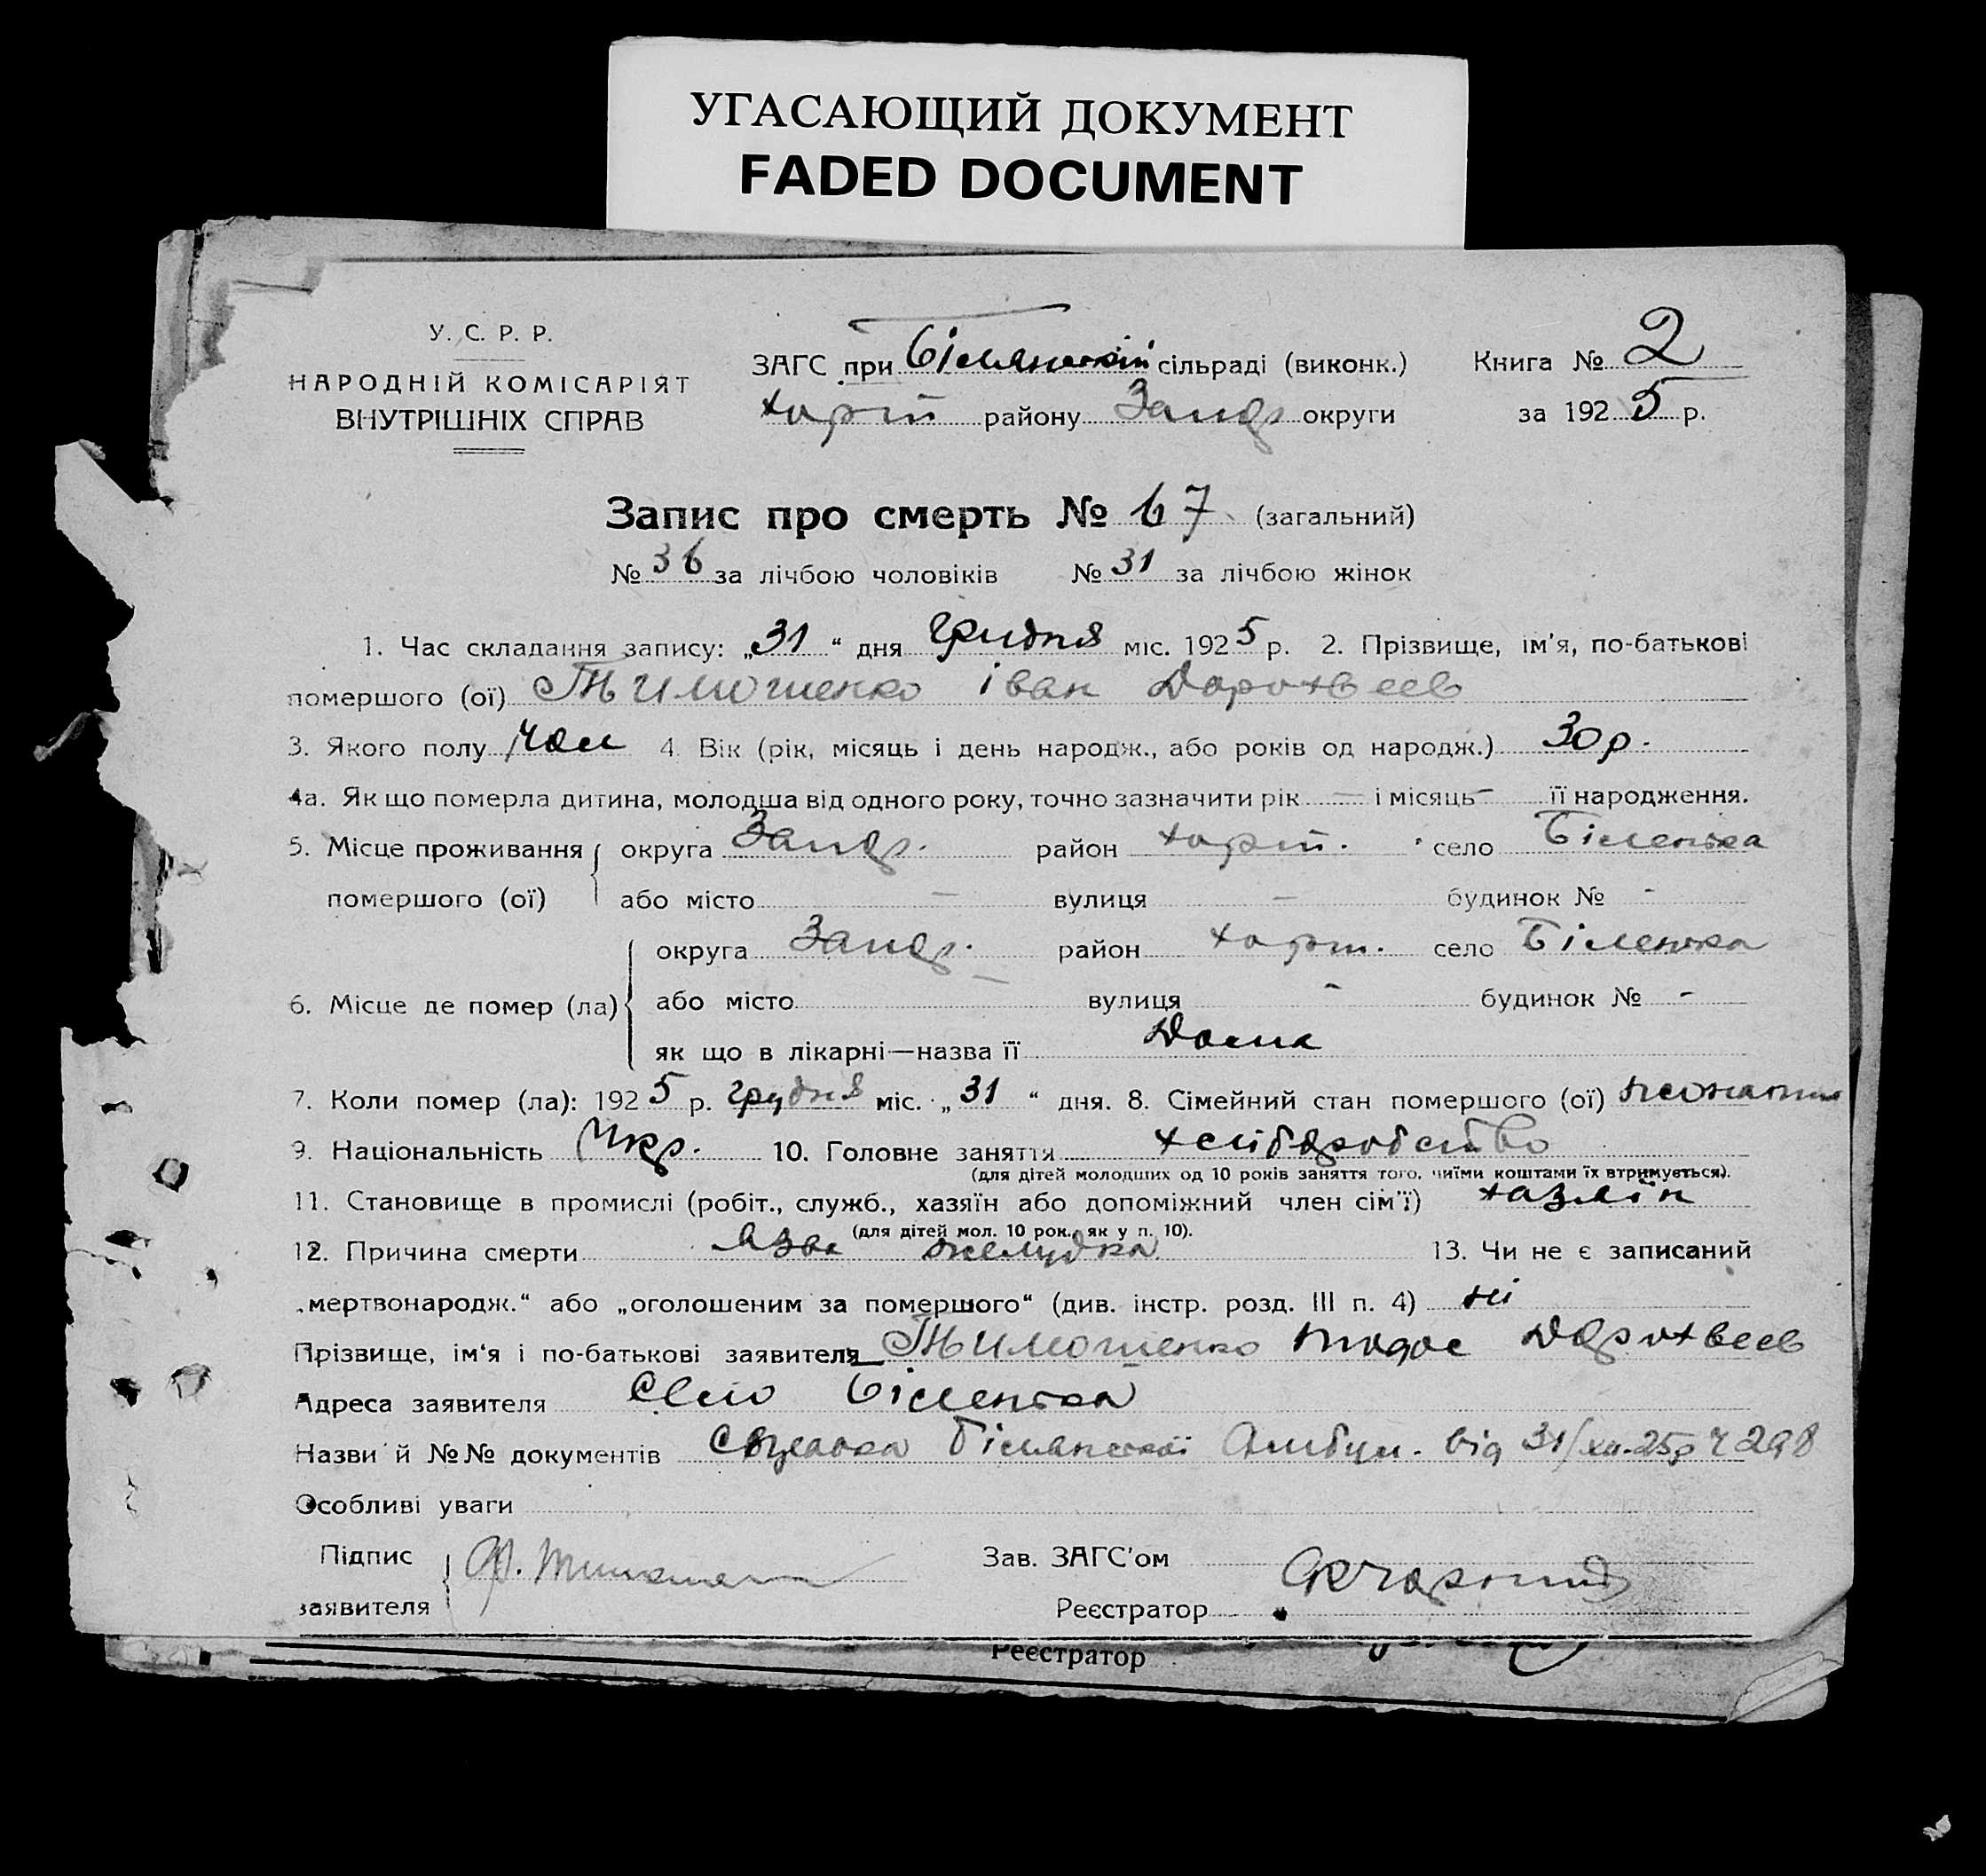 УГАСАЮЩИЙ ДОКУМЕНТ
FADED DOCUMENT
У. С. Р. Р.
НАРОДНІЙ КОМІСАРІЯТ
ВНУТРІШНІХ СПРАВ
ЗАГС при Білянській сільраді (виконк.)
Хорт району Запор округи
Книга № 2
за 1925 р.
Запис про смерть № 67 (загальний)
№ 36 за лічбою чоловіків № 31 за лічбою жінок
1. Час складання запису: „31“ дня грудня міс. 1925 р. 2. Прізвище, ім'я, по-батькові
помершого (ої) Тимошенко Іван Дорохвеев
3. Якого полу Чол 4. Вік (рік, місяць і день народж., або років од народж.) 30 р.
4а. Як що померла дитина, молодша від одного року, точно зазначити рік — і місяць — її народження.
5. Місце проживання помершого (ої) округа Запор. район Хорт. село Біленька
або місто — вулиця — будинок № -
6. Місце де помер (ла) округа Запор. район Хорт. село Біленька
або місто — вулиця - будинок № -
як що в лікарні—назва її Дома
7. Коли помер (ла): 1925 р. грудня міс. „31“ дня. 8. Сімейний стан помершого (ої) жонатий
9. Національність Укр. 10. Головне заняття хліборобство
(для дітей молодших од 10 років заняття того, чиїми коштами їх втримується).
11. Становище в промислі (робіт., служб., хазяїн або допоміжний член сім'ї) хазяїн
(для дітей мол. 10 рок., як у п. 10).
12. Причина смерти Язва желудка 13. Чи не є записаний
„мертвонародж.“ або „оголошеним за помершого“ (див. інстр. розд. III п. 4) ні
Прізвище, ім'я і по-батькові заявителя Тимошенко Тодос Дорохвеев
Адреса заявителя Село Біленька
Назви й №№ документів Білянської Амбул. від 31/XII-25р Ч 298
Особливі уваги
Підпис
заявителя
Зав. ЗАГС'ом
Реєстратор
Реєстратор